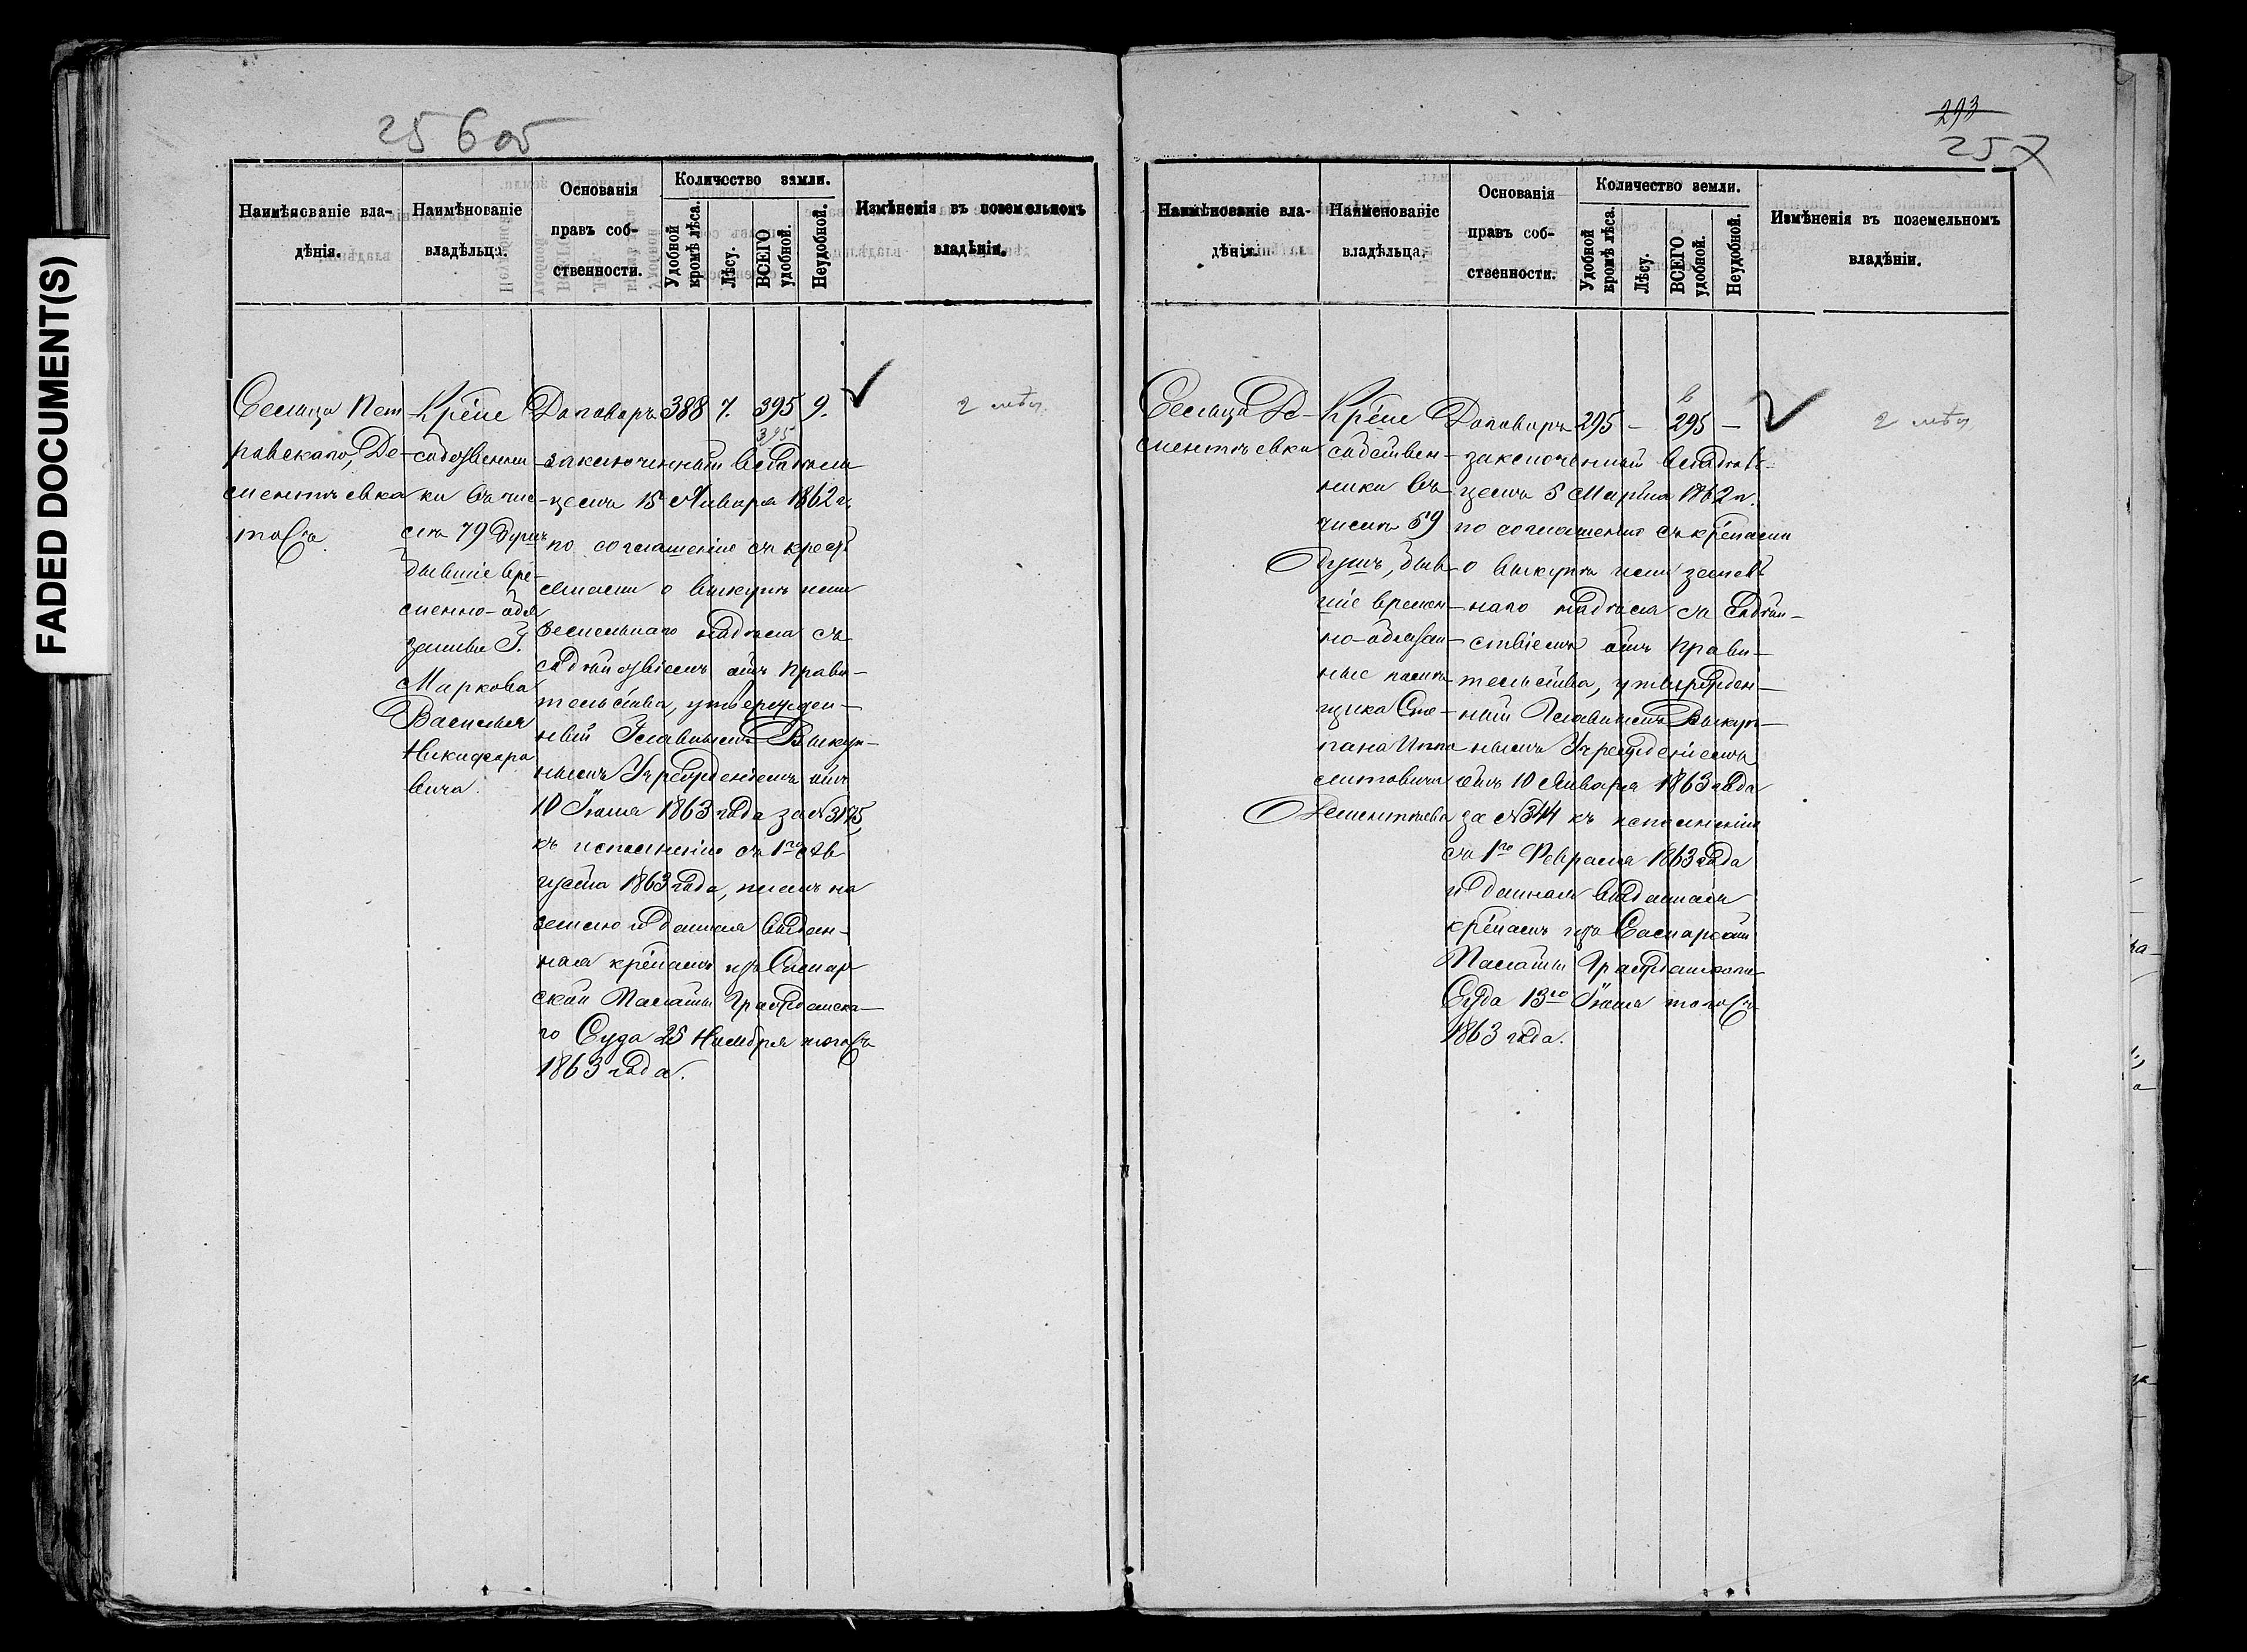 FADED DOCUMENT(S)
256об
Наимѣнованіе вла-
дѣнія.
Наимѣнованіе
владѣльца.
Основанія
правъ соб-
ственности.
Количество земли.
Удобной
кромѣ лѣса.
Лѣсу.
ВСЕГО
удобной.
Неудобной.
Измѣненія въ поземельномъ
владѣніи.
Сельца Пет
ровскаго, Де-
ментьевка
то съ
Кр-не
собственни
ки въ чис
лѣ 79 душъ
бывшіе вре-
менно-обя
занные Г.
Маркова
Василья
Никифоро
вича.
Договоръ
заключенный владѣль
цемъ 15 Января 1862 г.
по соглашенію съ крест
янами о выкупѣ ими
земельнаго надѣла съ
содѣйствіемъ отъ Прави-
тельства, утвержден-
ный Главнымъ Выкуп-
нымъ Учрежденіемъ отъ
10 Іюля 1863 года за №
къ исполненію съ 1го Ав
густа 1863 года,
землю и данная выдан-
ная кр-намъ изъ Самар
ской Палаты Гражданска-
го Суда 25 Ноября того съ
1863 года.
388
7.
395
395
9.
293
257
Наимѣнованіе вла-
дѣнія.
Наименованіе
владѣльца.
Основанія
правъ соб-
ственности.
Количество земли.
Удобной
кромѣ лѣса.
Лѣсу.
ВСЕГО
удобной.
Неудобной.
Измѣненія въ поземельномъ
владѣніи.
Сельца Де-
ментьевки
Кр-не
собствен-
ники въ
числѣ 59
душъ, быв
шіе времен-
но-обязан-
ные помѣ
щика Сте-
пана Иппо
литовича
Дементьева
Договоръ
заключенный владѣль-
цемъ 5 Марта 1862 г.
по соглашенію съ кр-нами
о выкупѣ ими земель
наго надѣла съ содѣй-
ствіемъ отъ Прави-
тельства, утвержден-
ный Главнымъ Выкуп-
нымъ Учрежденіемъ
отъ 10 Января 1863 года
за № 344 къ исполненію
съ 1го Февраля 1863 года
и данная выданная
кр-намъ изъ Самарской
Палаты Гражданскаго
Суда 13го Іюля того съ
1863 года.
295
-
295
-